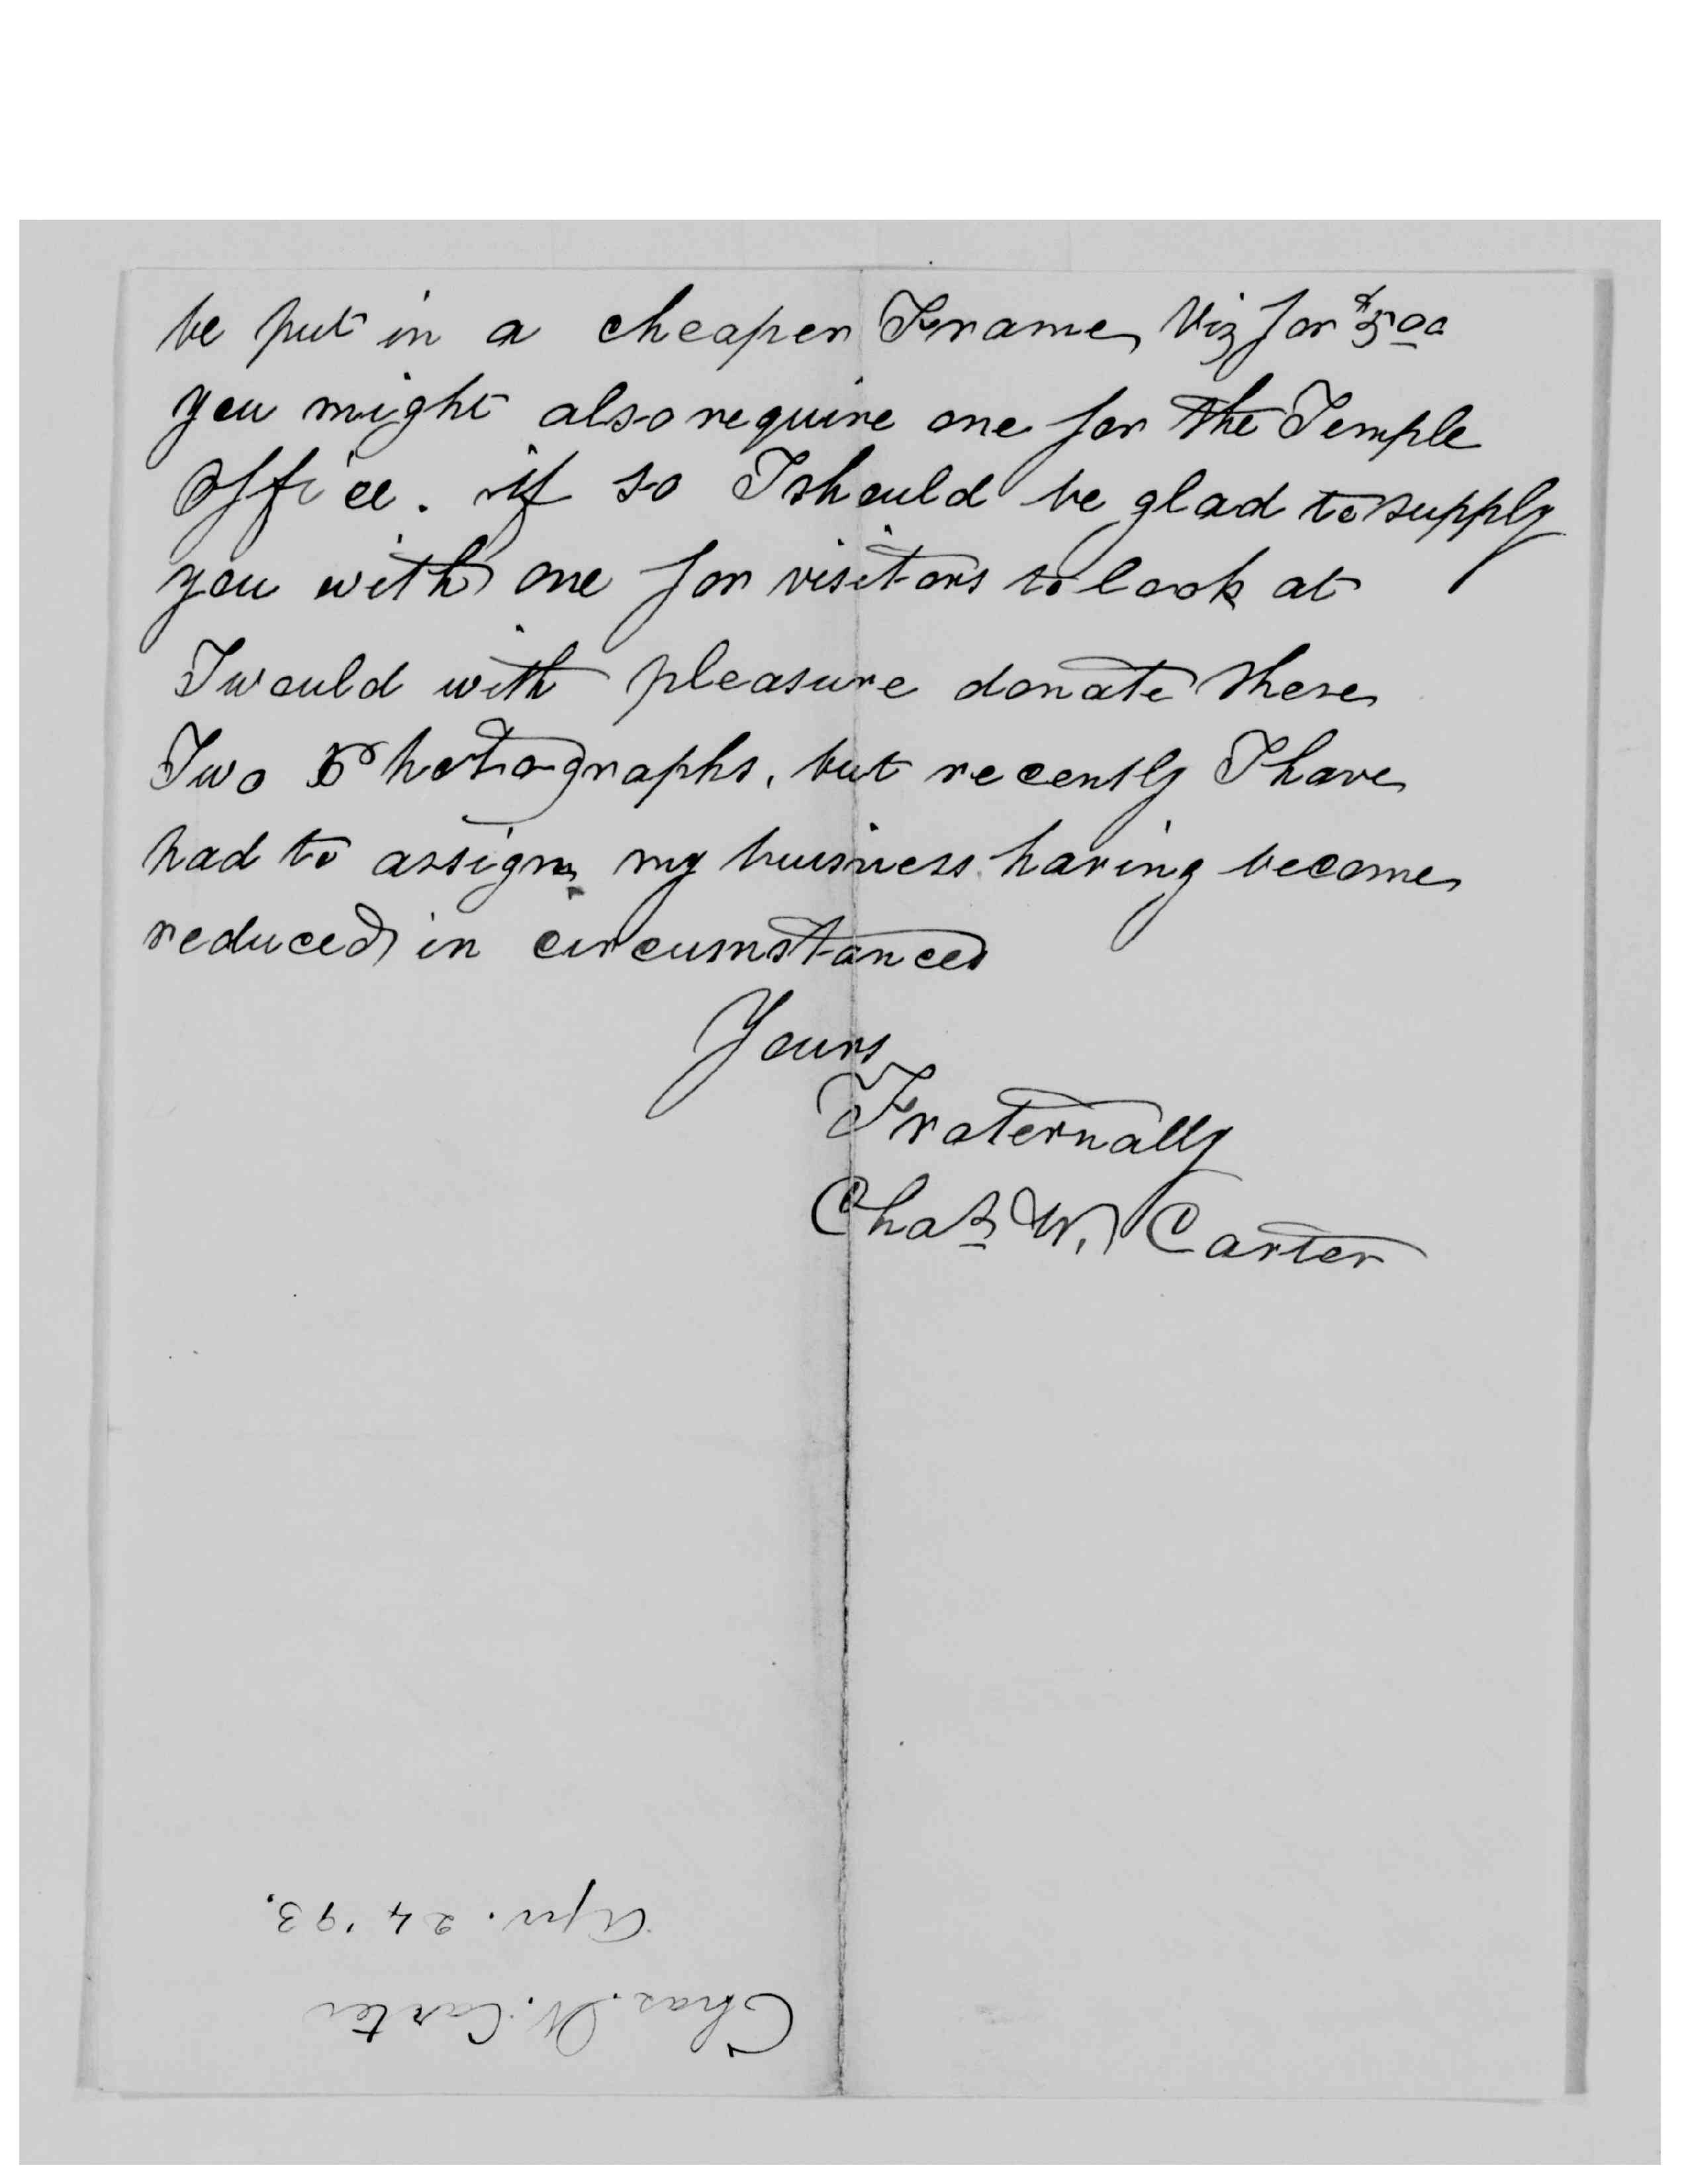 be put in a cheaper Frame, Viz for $5 00
you might also require one for the Temple
Office. if so I should be glad to supply
you with one for visitors to look at
I would with pleasure donate these
Two Photographs, but recently I have
had to assign my buisness having become
reduced in circumstances
Yours
Fraternally
Chas W. Carter
Chas. W. Carter
Apr. 24 '93.